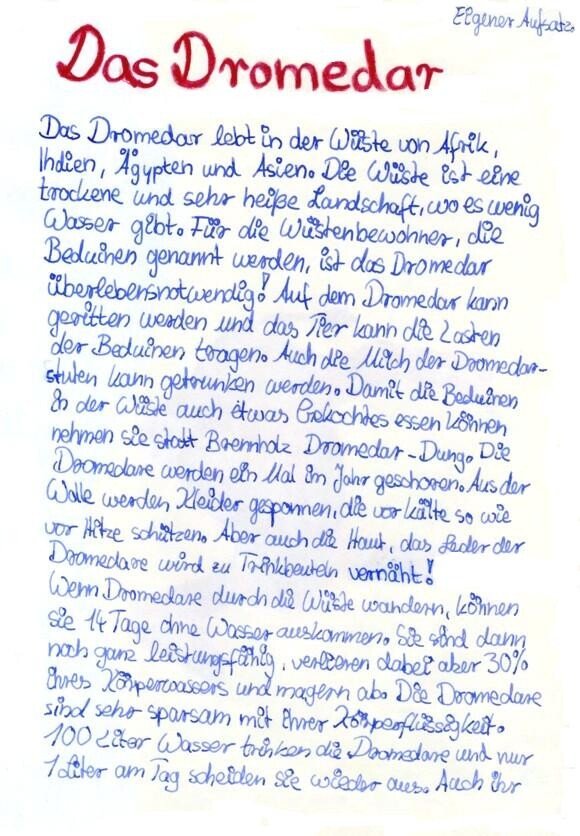 Eigener Aufsatz.
Das Dromedar
Das Dromedar lebt in der Wüste von Afrik,
Indien, Ägypten und Asien. Die Wüste ist eine
trockene und sehr heiße Landschaft, wo es wenig
Wasser gibt. Für die Wüstenbewohner, die
Beduinen genannt werden, ist das Dromedar
überlebensnotwendig! Auf dem Dromedar kann
geritten werden und das Tier kann die Lasten
der Beduinen tragen. Auch die Milch der Dromedar-
stuten kann getrunken werden. Damit die Beduinen
in der Wüste auch etwas Gekochtes essen können
nehmen sie statt Brennholz Dromedar-Dung. Die
Dromedare werden ein Mal im Jahr geschoren. Aus der
Wolle werden Kleider gesponnen, die vor kälte so wie
vor Hitze schützen. Aber auch die Haut, das Leder der
Dromedare wird zu Trinkbeuteln vernäht!
Wenn Dromedare durch die Wüste wandern, können
sie 14 Tage ohne Wasser auskommen. Sie sind dann
noch ganz leistungsfähig, verlieren dabei aber 30%
ihres Körperwassers und magern ab. Die Dromedare
sind sehr sparsam mit ihrer Körperflüssigkeit.
100 Liter Wasser trinken die Dromedare und nur
1 Liter am Tag scheiden sie wieder aus. Auch ihr